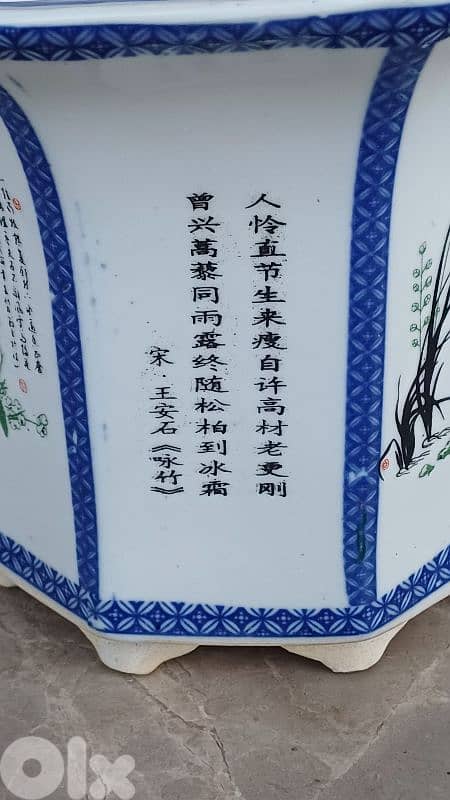 人怜直节生来瘦自许高材老更刚
曾兴蒿藜同雨露终随松柏到冰霜
宋·王安石《咏竹》
olx